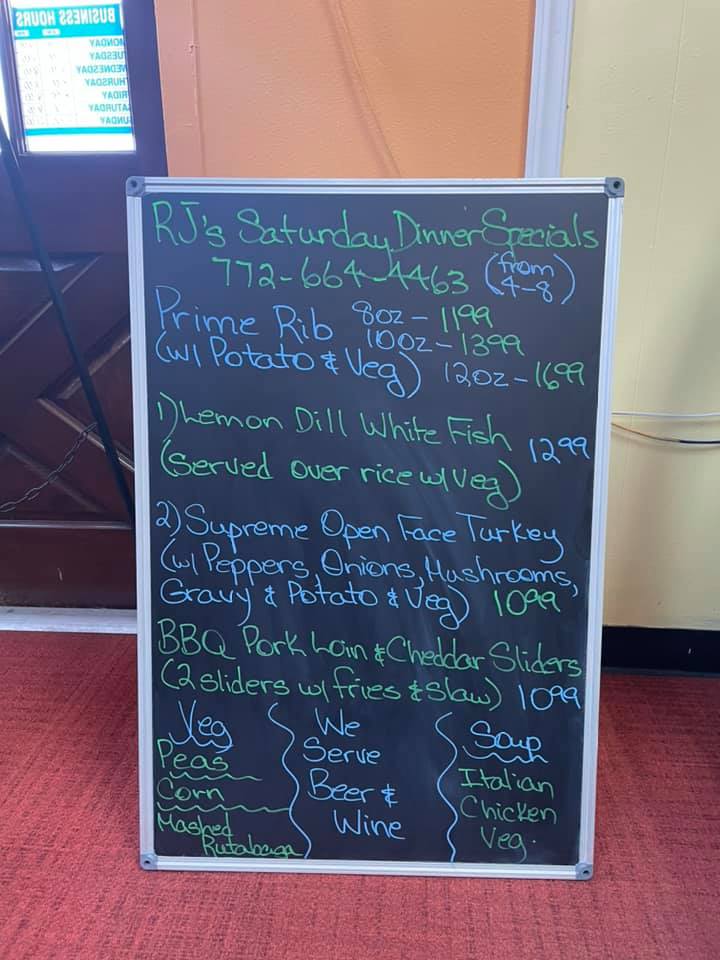 BUSINESS HOURS
MONDAY
TUESDAY
WEDNESDAY
THURSDAY
FRIDAY
SATURDAY
SUNDAY
RJ's Saturday Dinner Specials
772-664-4463 (from 4-8)
Prime Rib 8oz - 1199
10oz - 1399
(w/ Potato & Veg) 12oz - 1699
1) Lemon Dill White Fish 1299
(Served over rice w/ Veg)
2) Supreme Open Face Turkey
(w/ Peppers, Onions, Mushrooms,
Gravy & Potato & Veg) 1099
BBQ Pork Loin & Cheddar Sliders
(2 sliders w/ fries & slaw) 1099
Veg
Peas
Corn
Mashed
Rutabaga
We
Serve
Beer &
Wine
Soup
Italian
Chicken
Veg.